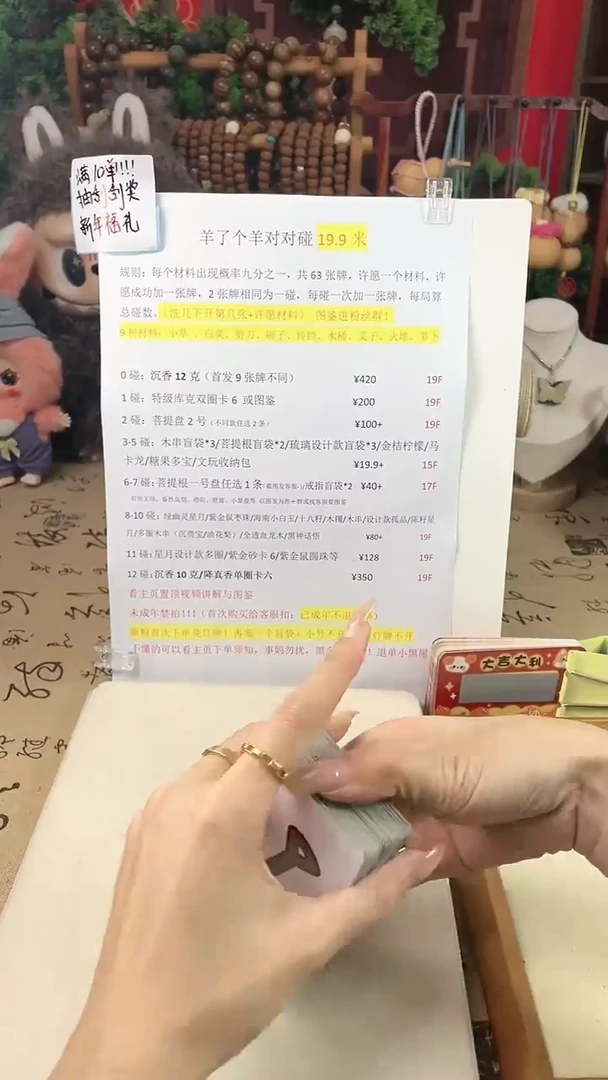 满10单!!!
抽刮刮奖
新年福礼
羊了个羊对对碰 19.9 米
规则：每个材料出现概率九分之一，共 63 张牌，许愿一个材料，许
愿成功加一张牌，2 张牌相同为一碰，每碰一次加一张牌，每局算
总碰数。（洗几下开第几张+许愿材料） 图鉴进粉丝群！
9 种材料：小草、白菜、剪刀、刷子、铃铛、水桶、叉子、火堆、萝卜
0 碰：沉香 12 克（首发 9 张牌不同） ¥420 19F
1 碰：特级库克双圈卡 6 或图鉴 ¥200 19F
2 碰：菩提盘 2 号（不同款任选 2 条） ¥100+ 19F
3-5 碰：木串盲袋*3/菩提根盲袋*2/琉璃设计款盲袋*3/金桔柠檬/马
卡龙/糖果多宝/文玩收纳包 ¥19.9+ 15F
6-7 碰：菩提根一号盘任选 1 条 /戒指盲袋*2 ¥40+ 17F
8-10 碰：绿幽灵星月/紫金鼠枣珠/海南小白玉/十八籽/木镯/木串/设计款孤品/陈籽星
月/多圈木串（沉贵宝/油花梨）/全透血龙木/黑神话悟 ¥80+ 19F
11 碰：星月设计款多圈/紫金砂卡 6/紫金鼠圆珠等 ¥128 19F
12 碰：沉香 10 克/降真香单圈卡六 ¥350 19F
看主页置顶视频讲解与图鉴
未成年禁拍!!!（首次购买给客服扣：已成年不退
新粉首次下单免灯牌！再送一个盲袋）小号不开 灯牌不开
不懂的可以看主页下单须知，事妈勿扰，黑 ！退单小黑屋
大吉大利